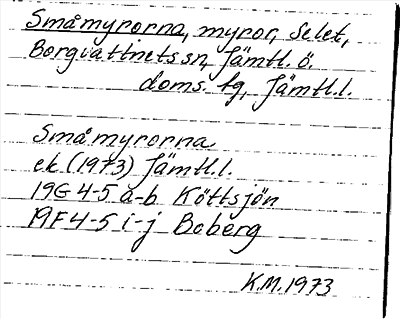 Småmyrorna, myror, Selet,
Borgvattnets sn, Jämtl. ö.
doms. fg, Jämtl.l.
Småmyrorna
ek (1973) Jämtl.l.
19G 4-5 a-b Köttsjön
19F 4-5 i-j Boberg
K.M. 1973